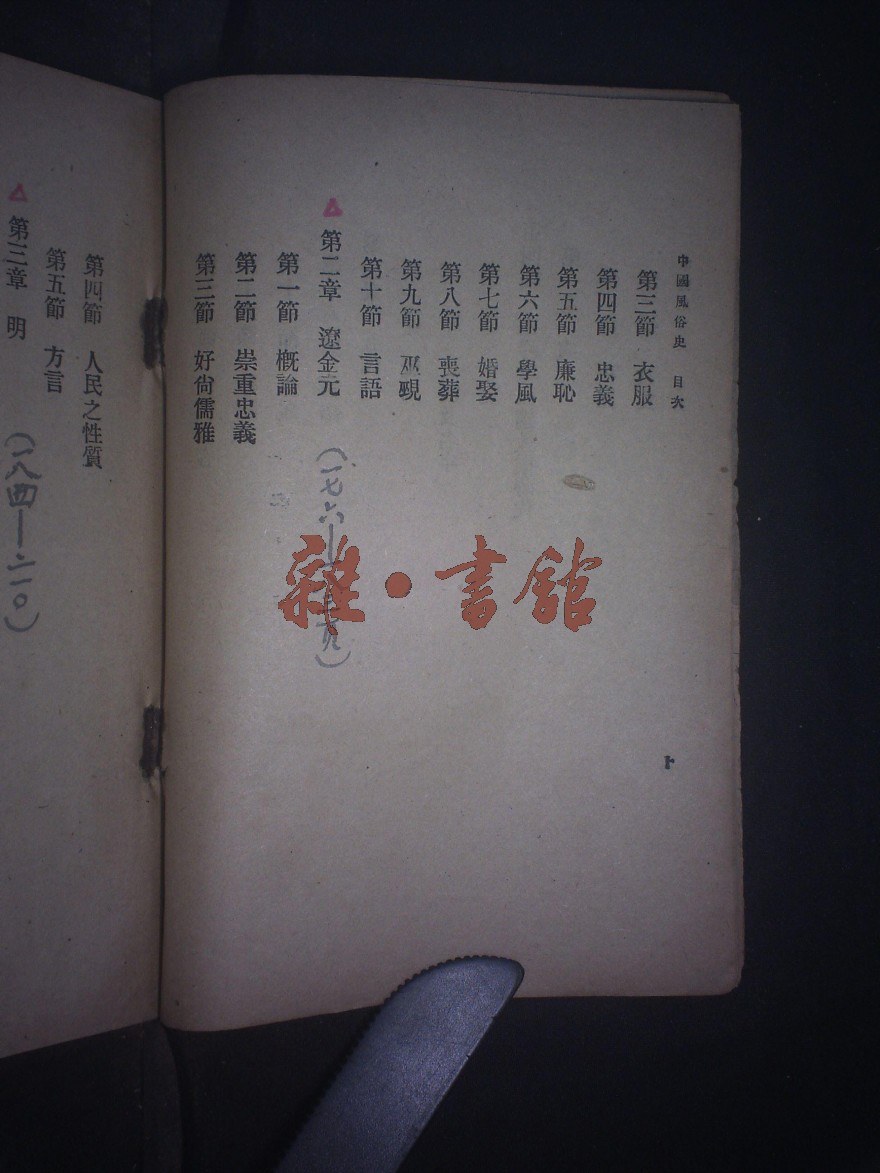 中國風俗史　目次
第三節　衣服
第四節　忠義
第五節　廉恥
第六節　學風
第七節　婚娶
第八節　喪葬
第九節　巫覡
第十節　言語
第二章　遼金元
第一節　概論
第二節　崇重忠義
第三節　好尙儒雅
第四節　人民之性質
第五節　方言
第三章　明
(一八四—二一〇)
雜·書館